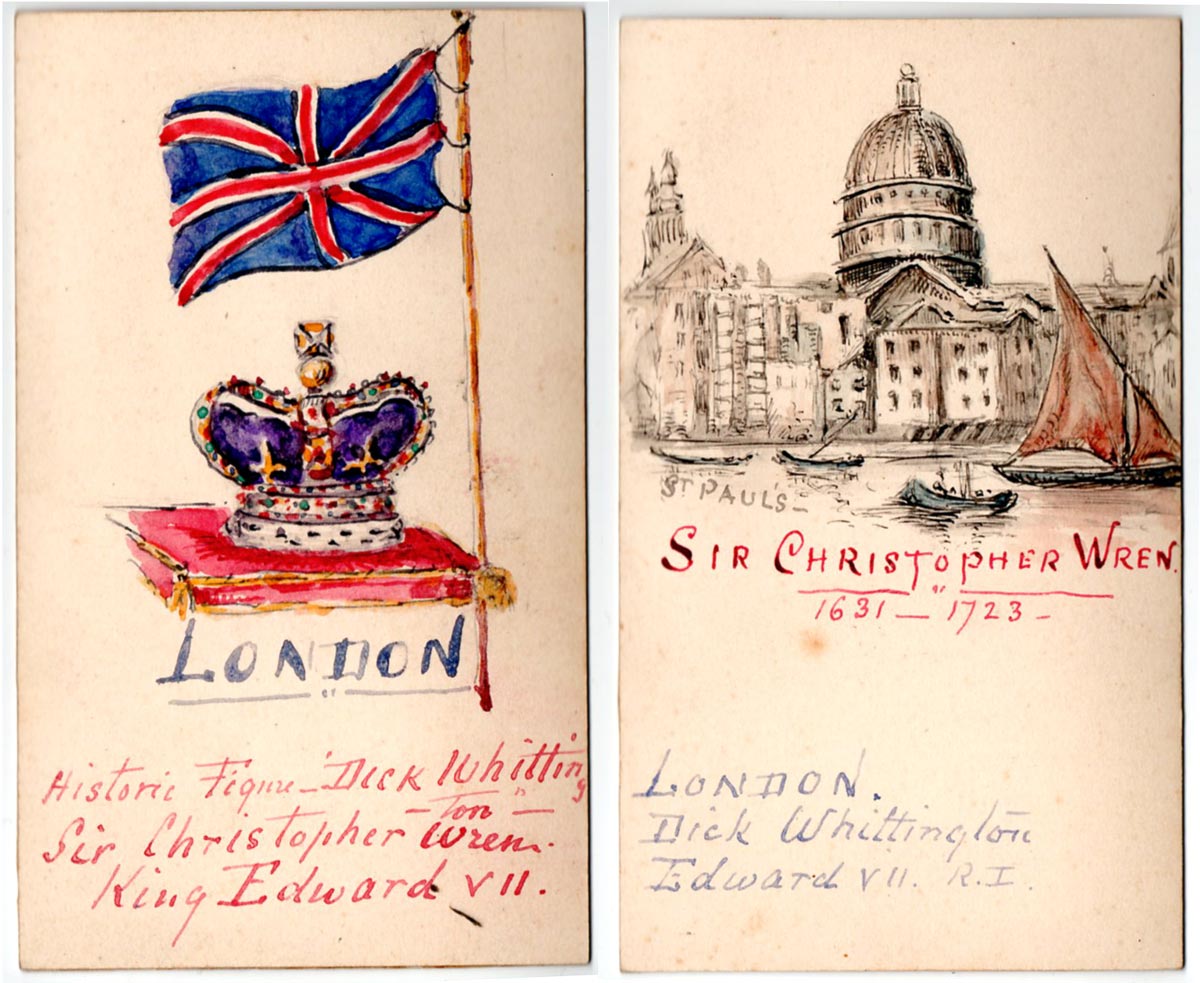 LONDON
Historic Figure - Dick Whitting
- ton -
Sir Christopher Wren.
King Edward VII.
ST PAUL'S -
SIR CHRISTOPHER WREN.
1631 - 1723 -
LONDON.
Dick Whittington
Edward VII. R.I.